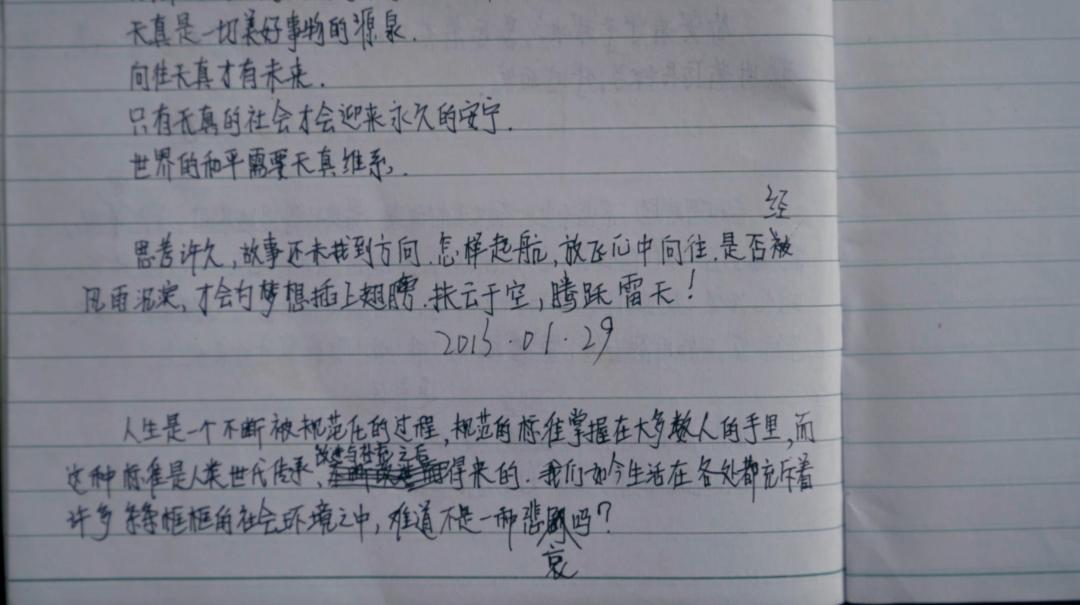 天真是一切美好事物的源泉.
向往天真才有未来.
只有天真的社会才会迎来永久的安宁.
世界的和平需要天真维系.
经
思考许久,故事还未找到方向.怎样起航,放飞心中向往.是否被
风雨沉淀,才会为梦想插上翅膀.扶云于空,腾跃雷天!
2013.01.29
人生是一个不断被规范化的过程,规范的标准掌握在大多数人的手里,而
这种标准是人类世代传承、改进与之后得来的.我们如今生活在各处都充斥着
许多条条框框的社会环境之中,难道不是一种悲哀吗?